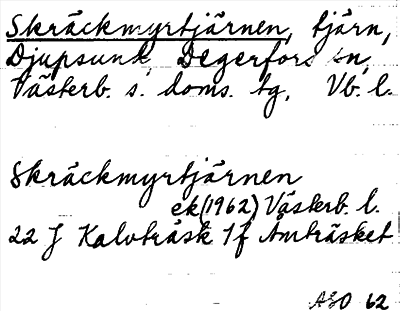 Skräckmyrtjärnen, tjärn,
Djupsund, Degerfors sn,
Västerb. s. doms. tg, Vb. l.
Skräckmyrtjärnen
ek (1962) Västerb. l.
22 J Kalvträsk 7f Amträsket
ASO 62